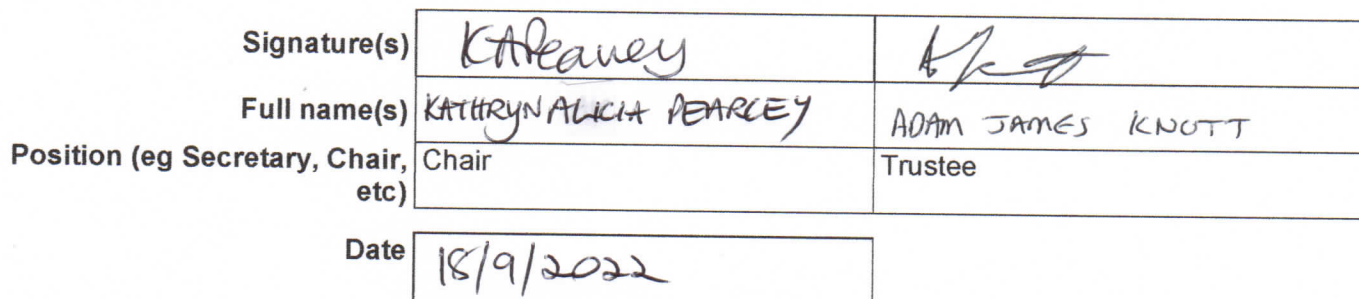 Signature(s) KAPearcey
Full name(s) KATHRYN ALICIA PEARCEY ADAM JAMES KNOTT
Position (eg Secretary, Chair, etc) Chair Trustee
Date 18/9/2022